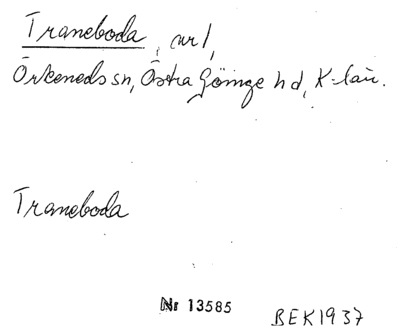 Traneboda, nr 1,
Örkeneds sn, Östra Göinge hd, K-län.
Traneboda
Nr 13585
BEK1937